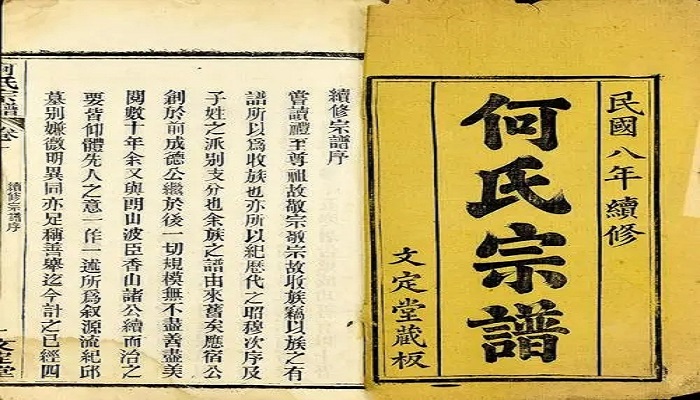 民國八年續修
何氏宗譜
文定堂藏板
續修宗譜序
嘗讀禮至尊祖故敬宗敬宗故收族竊以族之有
譜所以為收族也亦所以紀歷代之昭穆次序及
子姓之派別支分也余族之譜由來舊矣應宿公
創於前成德公繼於後一切規模無不盡善盡美
閱數十年余又與朗山波臣香山諸公續而治之
要皆仰體先人之意一作一述所為叙源流紀邱
墓別嫌微明異同亦足稱善舉迄今計之已經四
何氏宗譜
續修宗譜序
文定堂